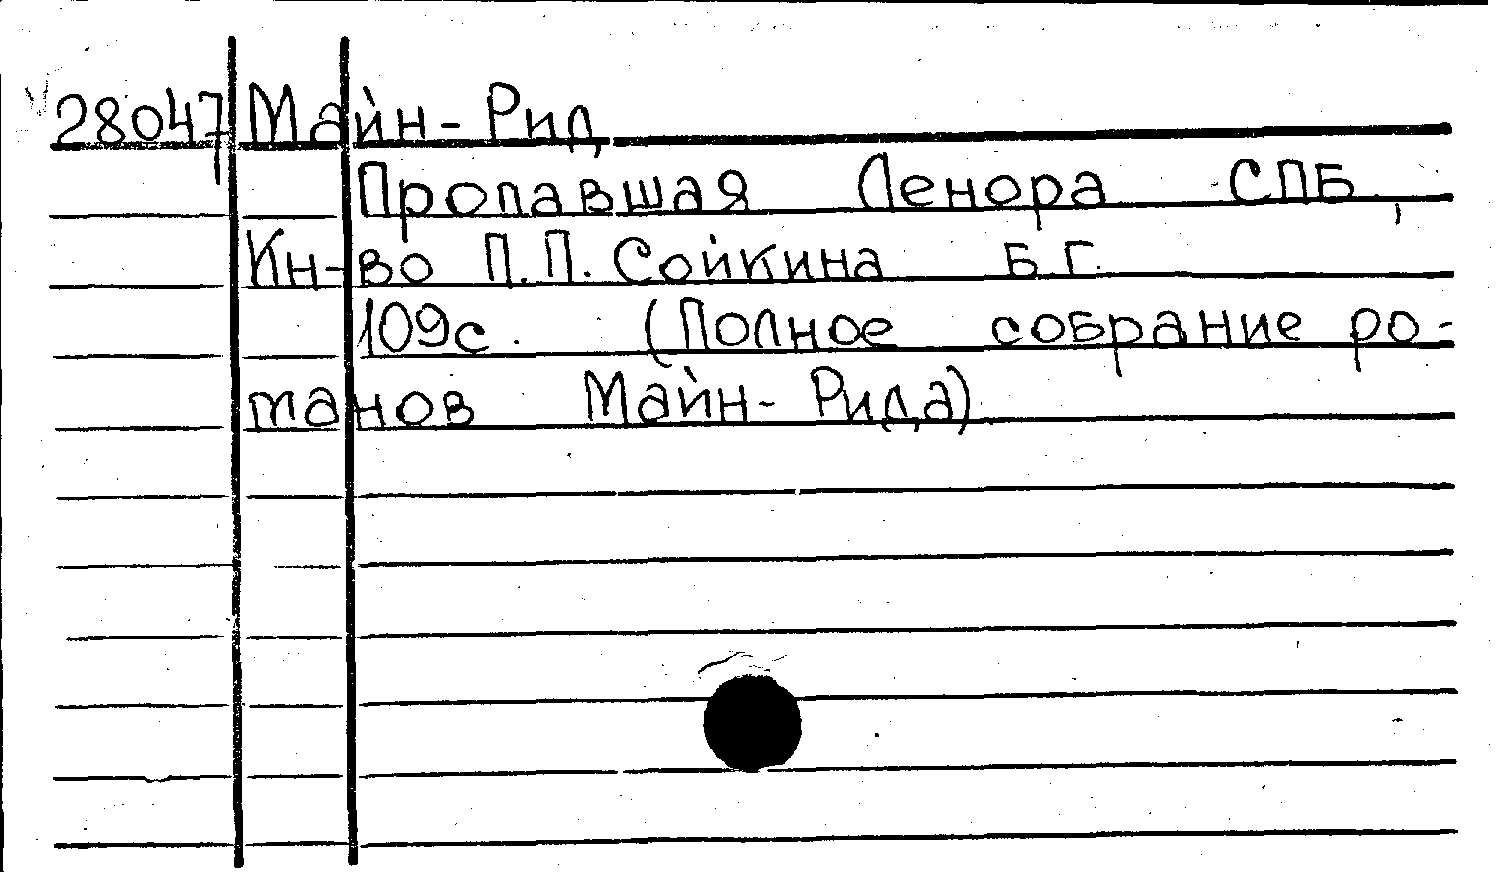 28047 Майн-Рид
Пропавшая Ленора СПБ,
Кн-во П.П.Сойкина Б.Г.
109с. (Полное собрание ро-
манов Майн-Рида)